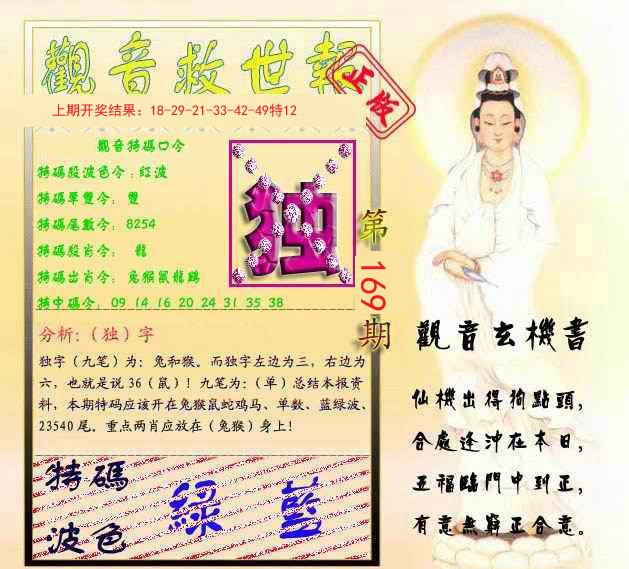 觀音救世報
正版
上期开奖结果：18-29-21-33-42-49特12
觀音特碼口令
特碼段波色令：紅波
特碼單雙令： 雙
特碼尾數令： 8254
特碼段肖令： 龍
特碼出肖令： 兔猴鼠龍鷄
特中碼令： 09 14 16 20 24 31 35 38
独
第
169
期
分析：（独）字
独字（九笔）为：兔和猴。而独字左边为三，右边为
六，也就是说36（鼠）！九笔为：（单）总结本报资
料，本期特码应该开在兔猴鼠蛇鸡马、单数、蓝绿波、
23540尾。重点两肖应放在（兔猴）身上！
特碼
波色
綠 藍
觀音玄機書
仙機出得狗點頭，
合處逢沖在本日，
五福臨門中到正，
有意無辭正合意。